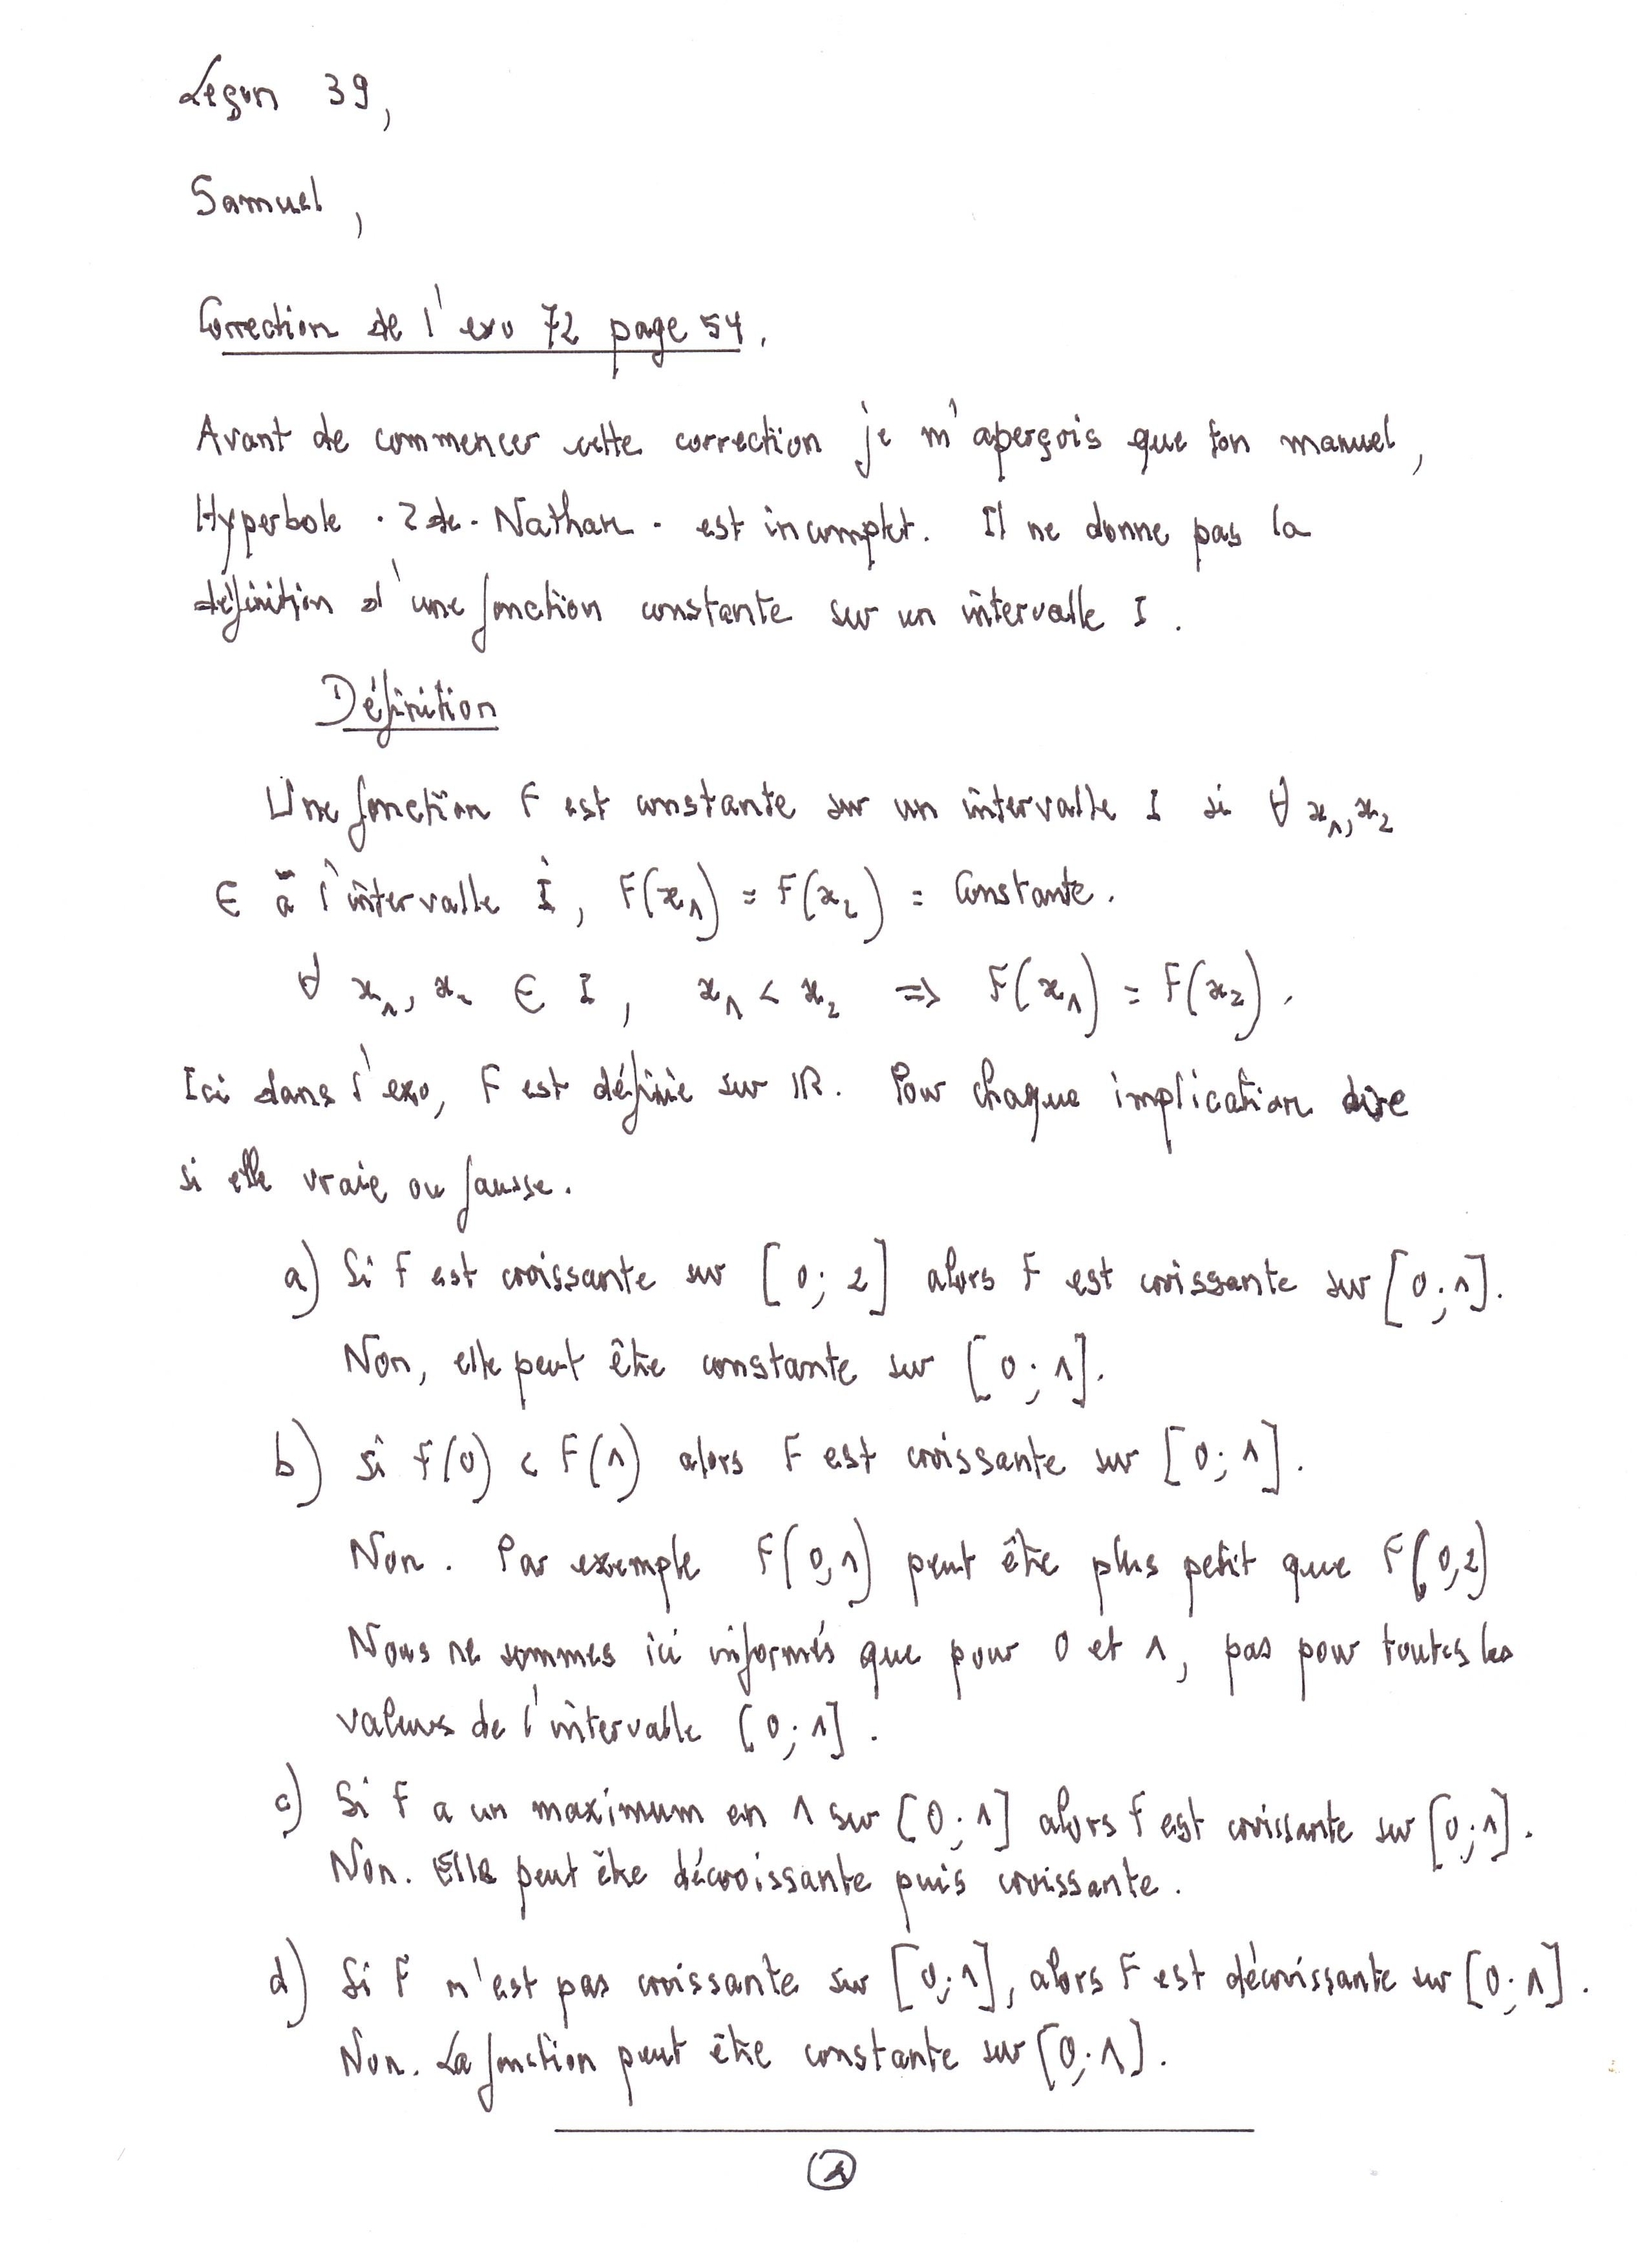 Leçon 39,
Samuel,
Correction de l'exo 72 page 54.
Avant de commencer cette correction je m'aperçois que ton manuel,
Hyperbole . 2de . Nathan . est incomplet. Il ne donne pas la
définition d'une fonction constante sur un intervalle I.
Définition
Une fonction F est constante sur un intervalle I si ∀ x₁, x₂
∈ à l'intervalle I, F(x₁) = F(x₂) = Constante.
∀ x₁, x₂ ∈ I, x₁ < x₂ => F(x₁) = F(x₂).
Ici dans l'exo, F est définie sur IR. Pour chaque implication dire
si elle vraie ou fausse.
a) Si F est croissante sur [0; 2] alors F est croissante sur [0; 1].
Non, elle peut être constante sur [0; 1].
b) si f(0) < F(1) alors F est croissante sur [0; 1].
Non. Par exemple F(0,1) peut être plus petit que F(0,2)
Nous ne sommes ici informés que pour 0 et 1, pas pour toutes les
valeurs de l'intervalle [0; 1].
c) Si F a un maximum en 1 sur [0; 1] alors f est croissante sur [0; 1].
Non. Elle peut être décroissante puis croissante.
d) Si F n'est pas croissante sur [0; 1], alors F est décroissante sur [0; 1].
Non. La fonction peut être constante sur [0; 1].
1